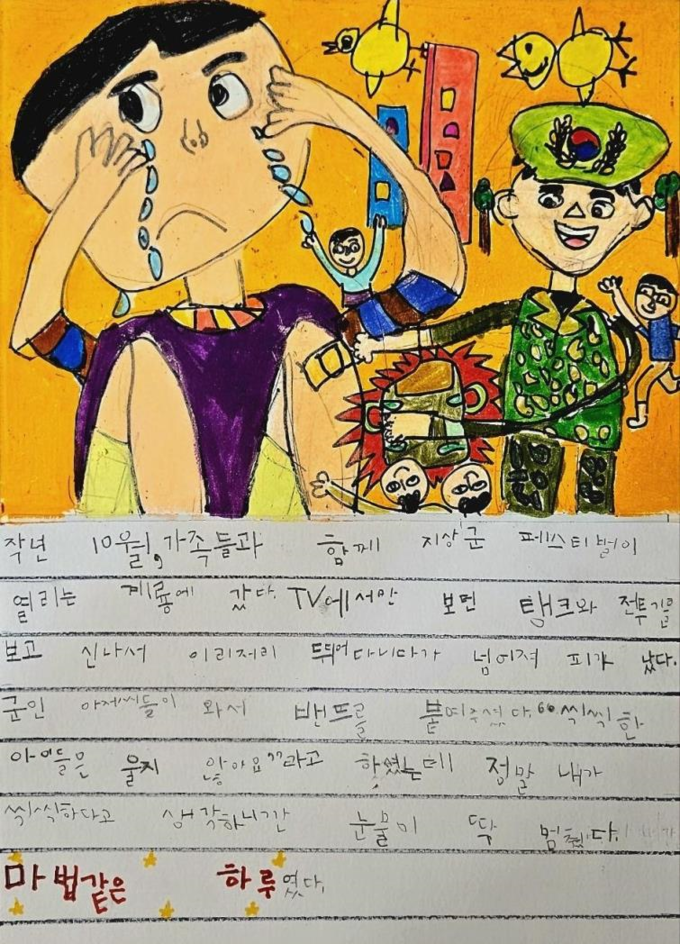 작년 10월, 가족들과 함께 지상군 페스티벌이
열리는 계룡에 갔다. TV에서만 보면 탱크와 전투기를
보고 신나서 이리저리 뛰어다니다가 넘어져 피가 났다.
군인 아저씨들이 와서 밴드를 붙여주셨다. "씩씩한
아이들은 울지 않아요"라고 하셨는데 정말 내가
씩씩하다고 생각하니깐 눈물이 뚝 멈췄다.
마법같은 하루였다.